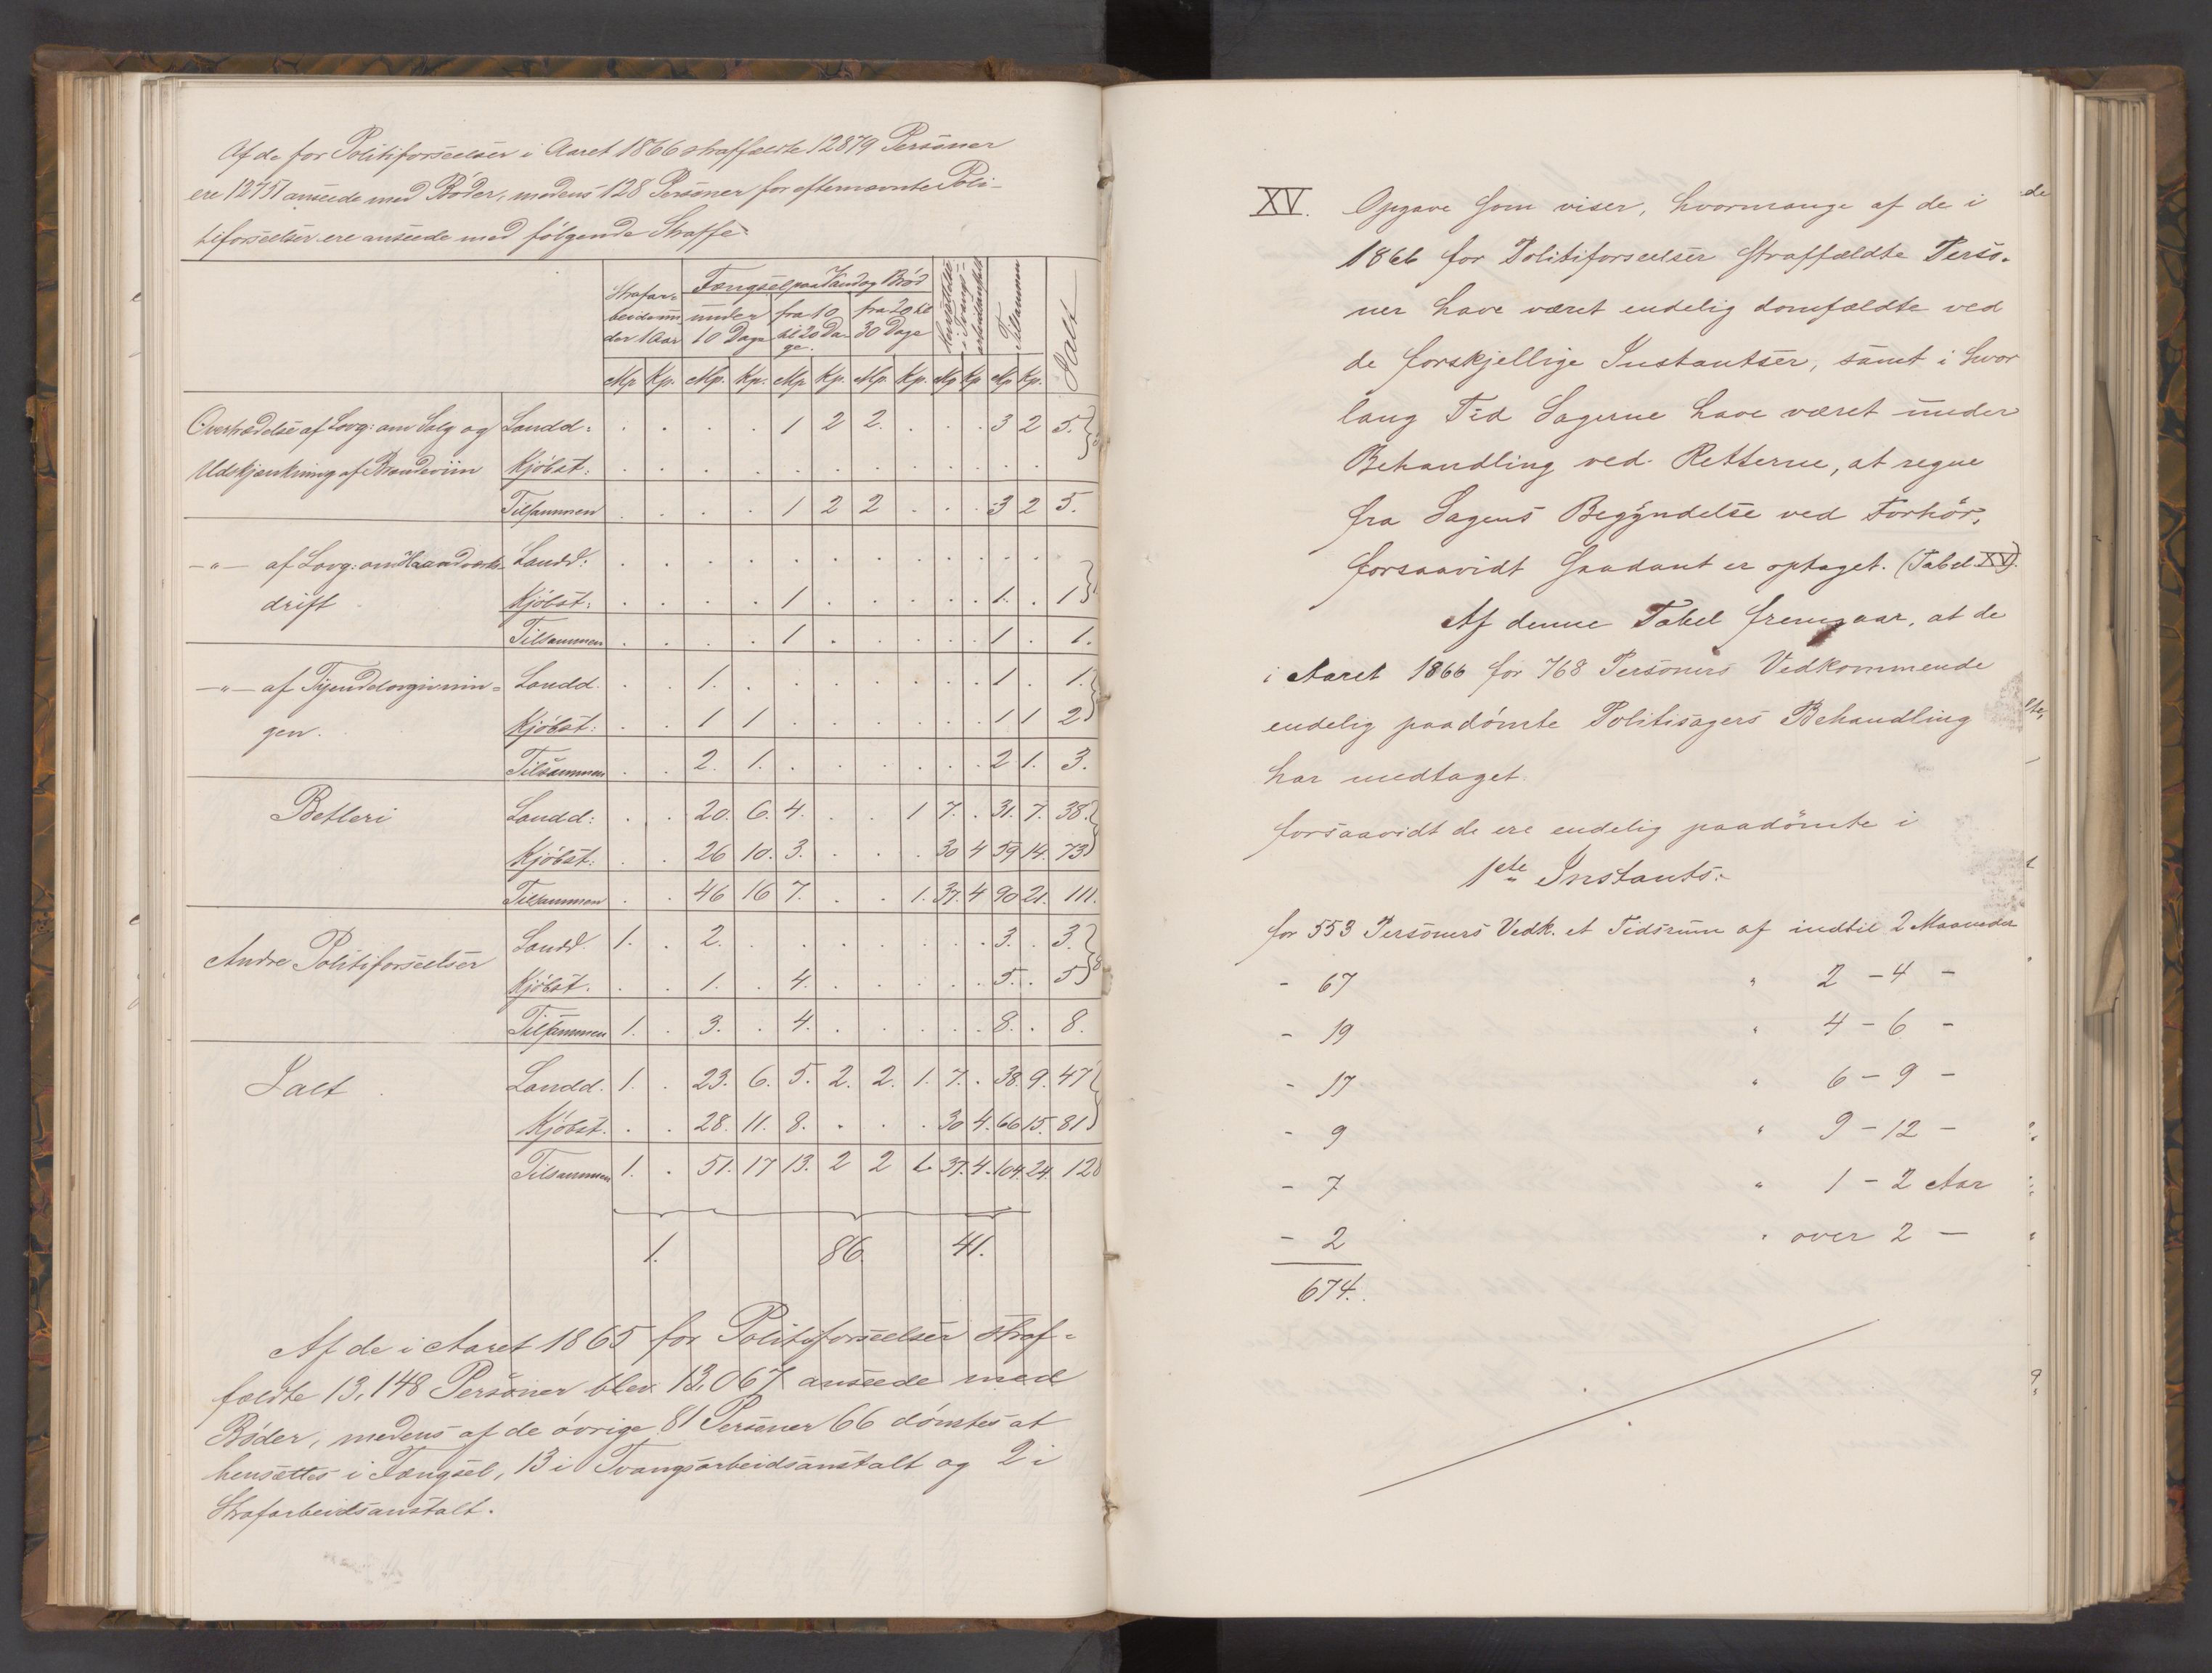 Af de for Politiforseelser i Aaret 1866 straffældte 12879 Personer
ere 12751 anseede med Bøder, medens 128 Personer for efternævnte Poli-
tiforseelser ere anseede med følgende Straffe:
Strafar- beide un der 1 Aar | Fængsel paa Vand og Brød | Hensættelse i Tvangs- arbeidsanstalt | Tilsammen | Ialt
under 10 Dage | fra 10 til 20 Da ge. | fra 20 til 30 Dage
Mp. Kp. Mp. Kp. Mp. Kp. Mp. Kp. Mp. Kp. Mp. Kp.
Overtrædelse af Lovg: om Salg og Landd: . . . . 1 2 2. . . . 3 2 5.
Udskjænkning af Brændeviin Kjøbst: . . . . . . . . . . . .
Tilsammen . . . . 1 2 2 . . . 3 2 5.
—„— af Lovg: om Haandværks- Landd: . . . . . . . . . . . .
drift Kjøbst: . . . . 1 . . . . . 1. . 1
Tilsammen . . . . 1 . . . . . 1 . 1.
—„— af Tyendelovgivnin- Landd. . . 1. . . . . . . . 1 . 1.
gen. Kjøbst: . . 1 1 . . . . . . 1 1 2
Tilsammen . . 2. 1. . . . . . . 2 1. 3.
Betleri Landd: . . 20. 6. 4. . . 1 7. . 31. 7. 38.
Kjøbst: . . 26 10. 3. . . . 30 4 59 14. 73
Tilsammen . . 46 16 7. . . 1. 37. 4 90 21. 111.
Andre Politiforseelser Landd. 1. . 2. . . . . . . . 3. . 3.
Kjøbst. . . 1. . 4. . . . . . 5. . 5
Tilsammen 1. . 3. . 4. . . . . . 8. . 8.
Ialt Landd. 1. . 23. 6. 5. 2. 2. 1. 7. . 38. 9. 47
Kjøbst. . . 28. 11. 8. . . . 30 4. 66 15. 81
Tilsammen 1. . 51. 17 13. 2 2 1. 37. 4. 104. 24. 128
1. 86. 41.
Af de i Aaret 1865 for Politiforseelser straf-
fældte 13,148 Personer blev 13,067 anseede med
Bøder, medens af de øvrige 81 Personer 66 dømtes at
hensættes i Fængsel, 13 i Tvangsarbeidsanstalt og 2 i
Strafarbeidsanstalt.
XV. Opgave som viser, hvormange af de i
1866 for Politiforseelser straffældte Perso-
ner have været endelig domfældte ved
de forskjellige Instantser, samt i hvor
lang Tid Sagerne have været under
Behandling ved Retterne, at regne
fra Sagens Begyndelse ved Forhør,
forsaavidt saadant er optaget. (Tabel XV).
Af denne Tabel fremgaar, at de
i Aaret 1866 for 768 Personers Vedkommende
endelig paadømte Politisagers Behandling
har medtaget
forsaavidt de ere endelig paadømte i
1ste Instants:
for 553 Personers Vedk. et Tidsrum af indtil 2 Maaneder
- 67 „ 2 - 4 -
- 19 „ 4 - 6 -
- 17 „ 6 - 9 -
- 9 „ 9 - 12 -
- 7 „ 1 - 2 Aar
- 2 „ over 2 —
674.